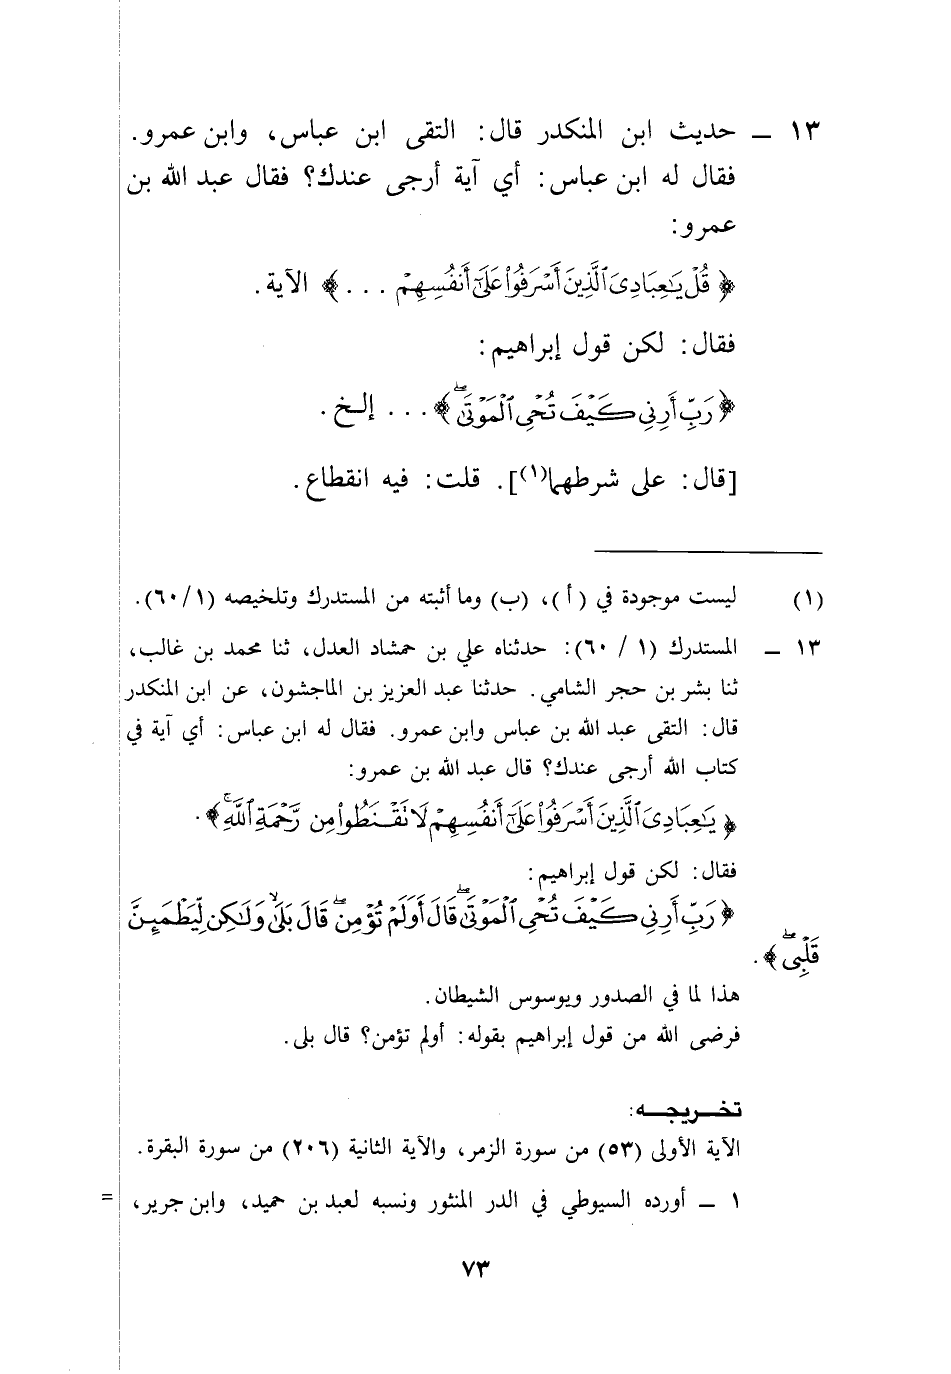 ١٣ ــ حديث ابن المنكدر قال: التقى ابن عباس، وابن عمرو.
فقال له ابن عباس: أي آية أرجى عندك؟ فقال عبد الله بن
عمرو:
﴿ قُلْ يَٰعِبَادِىَ ٱلَّذِينَ أَسْرَفُوا۟ عَلَىٰٓ أَنفُسِهِمْ ... ﴾ الآية.
فقال: لكن قول إبراهيم:
﴿ رَبِّ أَرِنِى كَيْفَ تُحْىِ ٱلْمَوْتَىٰۖ ﴾ ... إلخ.
[قال: على شرطهما(١)]. قلت: فيه انقطاع.
(١) ليست موجودة في (أ)، (ب) وما أثبته من المستدرك وتلخيصه (٦٠/١).
١٣ ــ المستدرك (١ / ٦٠): حدثناه علي بن حمشاد العدل، ثنا محمد بن غالب،
ثنا بشر بن حجر الشامي. حدثنا عبد العزيز بن الماجشون، عن ابن المنكدر
قال: التقى عبد الله بن عباس وابن عمرو. فقال له ابن عباس: أي آية في
كتاب الله أرجى عندك؟ قال عبد الله بن عمرو:
﴿ يَٰعِبَادِىَ ٱلَّذِينَ أَسْرَفُوا۟ عَلَىٰٓ أَنفُسِهِمْ لَا نَقْنَطُوا۟ مِن رَّحْمَةِ ٱللَّهِۚ ﴾.
فقال: لكن قول إبراهيم:
﴿ رَبِّ أَرِنِى كَيْفَ تُحْىِ ٱلْمَوْتَىٰۖ قَالَ أَوَلَمْ تُؤْمِنۖ قَالَ بَلَىٰ وَلَٰكِن لِّيَطْمَئِنَّ
قَلْبِىۖ ﴾.
هذا لما في الصدور ويوسوس الشيطان.
فرضى الله من قول إبراهيم بقوله: أولم تؤمن؟ قال بلى.
تخـــريجـــه:
الآية الأولى (٥٣) من سورة الزمر، والآية الثانية (٢٠٦) من سورة البقرة.
١ ــ أورده السيوطي في الدر المنثور ونسبه لعبد بن حميد، وابن جرير، =
٧٣